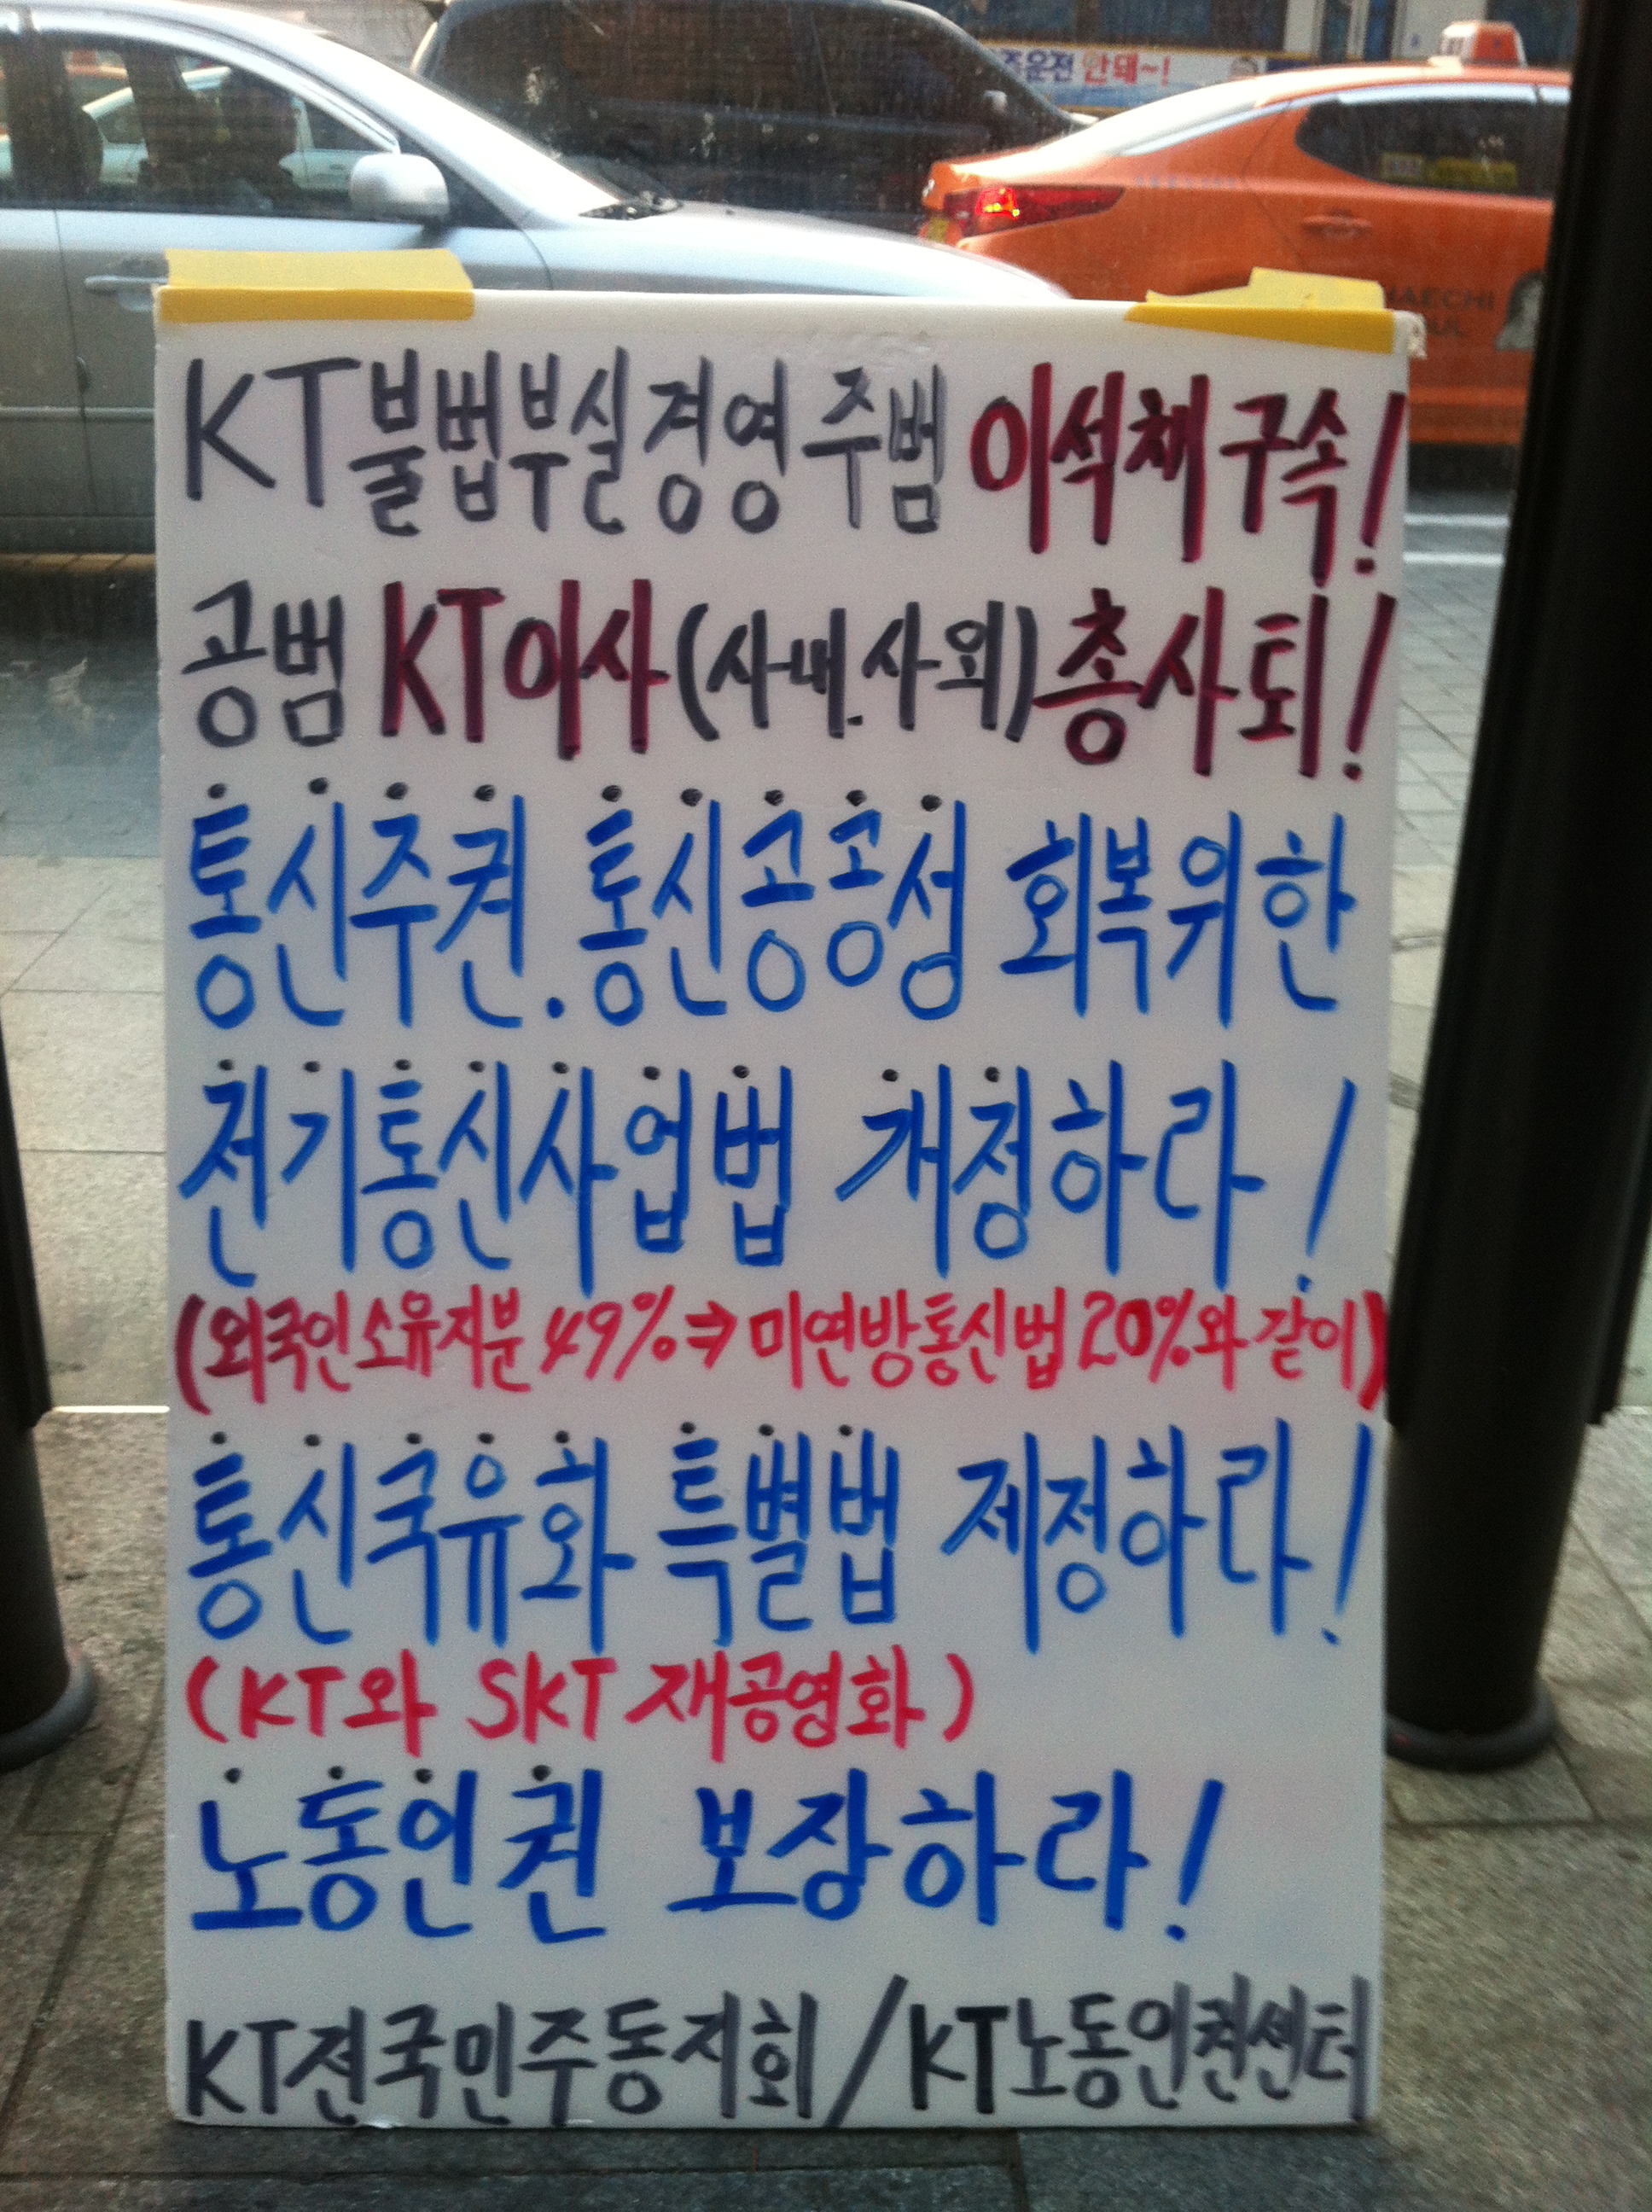 운전 안돼~!
KT불법부실경영 주범 이석채 구속!
공범 KT이사(사내.사외)총사퇴!
통신주권.통신공공성 회복위한
전기통신사업법 개정하라!
(외국인소유지분 49%⇒미연방통신법 20%와 같이)
통신국유화 특별법 제정하라!
(KT와 SKT 재공영화)
노동인권 보장하라!
KT전국민주동지회/KT노동인권센터